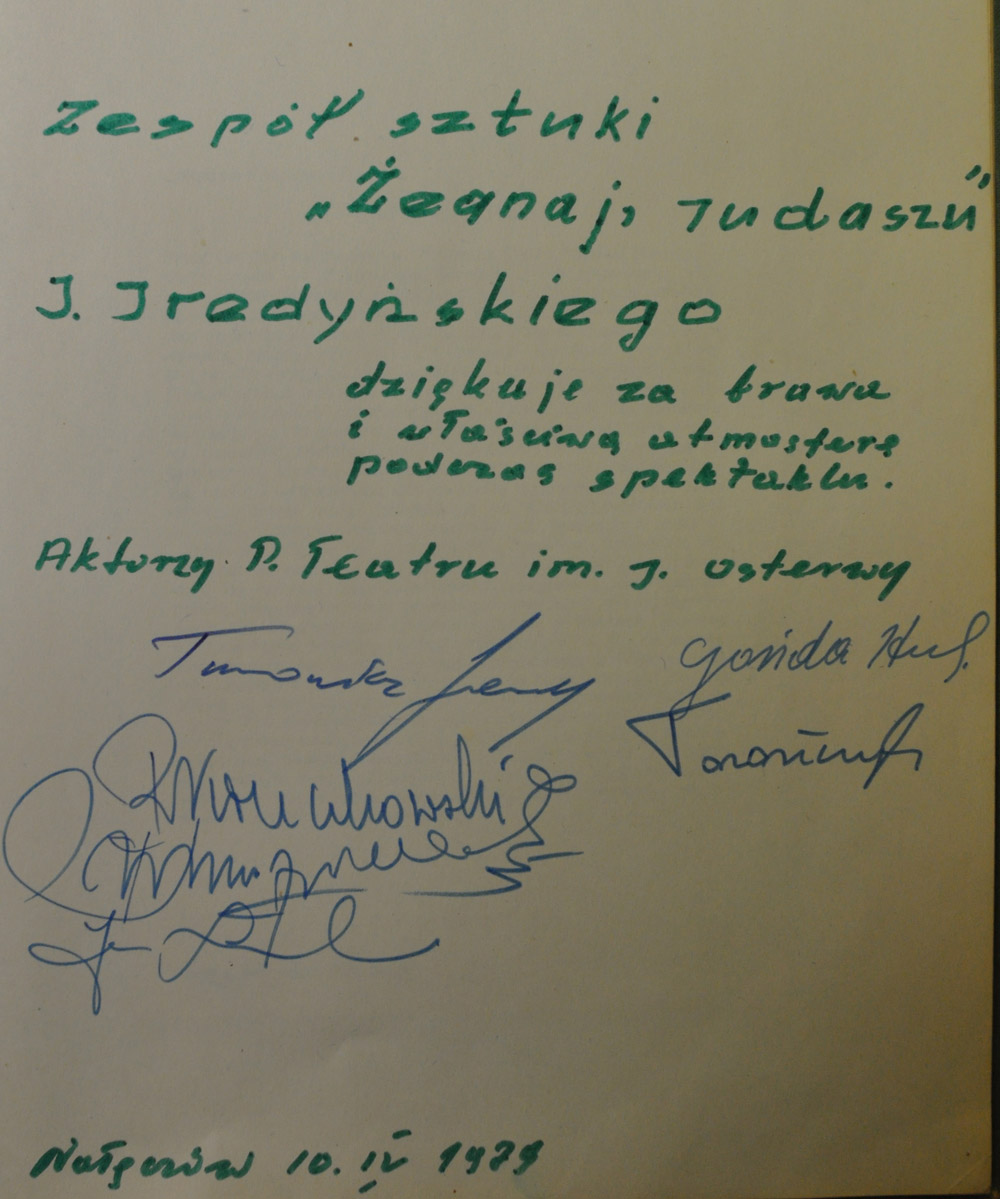 Zespół sztuki
„Żegnaj, Judaszu”
J. Iredyńskiego
dziękuje za brawa
i właściwą atmosferę
podczas spektaklu.
Aktorzy P. Teatru im. J. Osterwy
Nałęczów 10. IV 1979